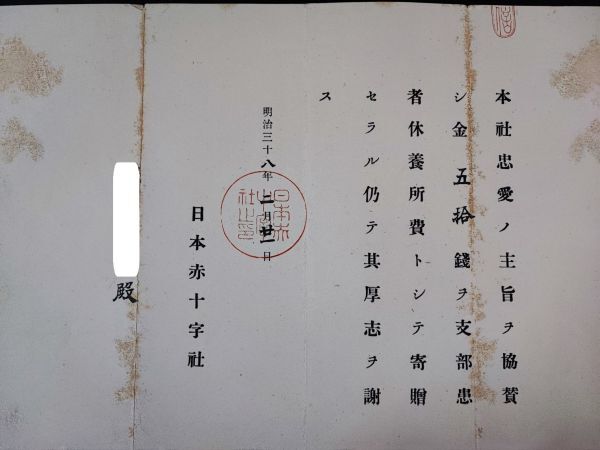 本社忠愛ノ主旨ヲ協賛
シ金五拾錢ヲ支部患
者休養所費トシテ寄贈
セラル仍テ其厚志ヲ謝
ス
明治三十八年二月廿一日
日本赤十字社
殿